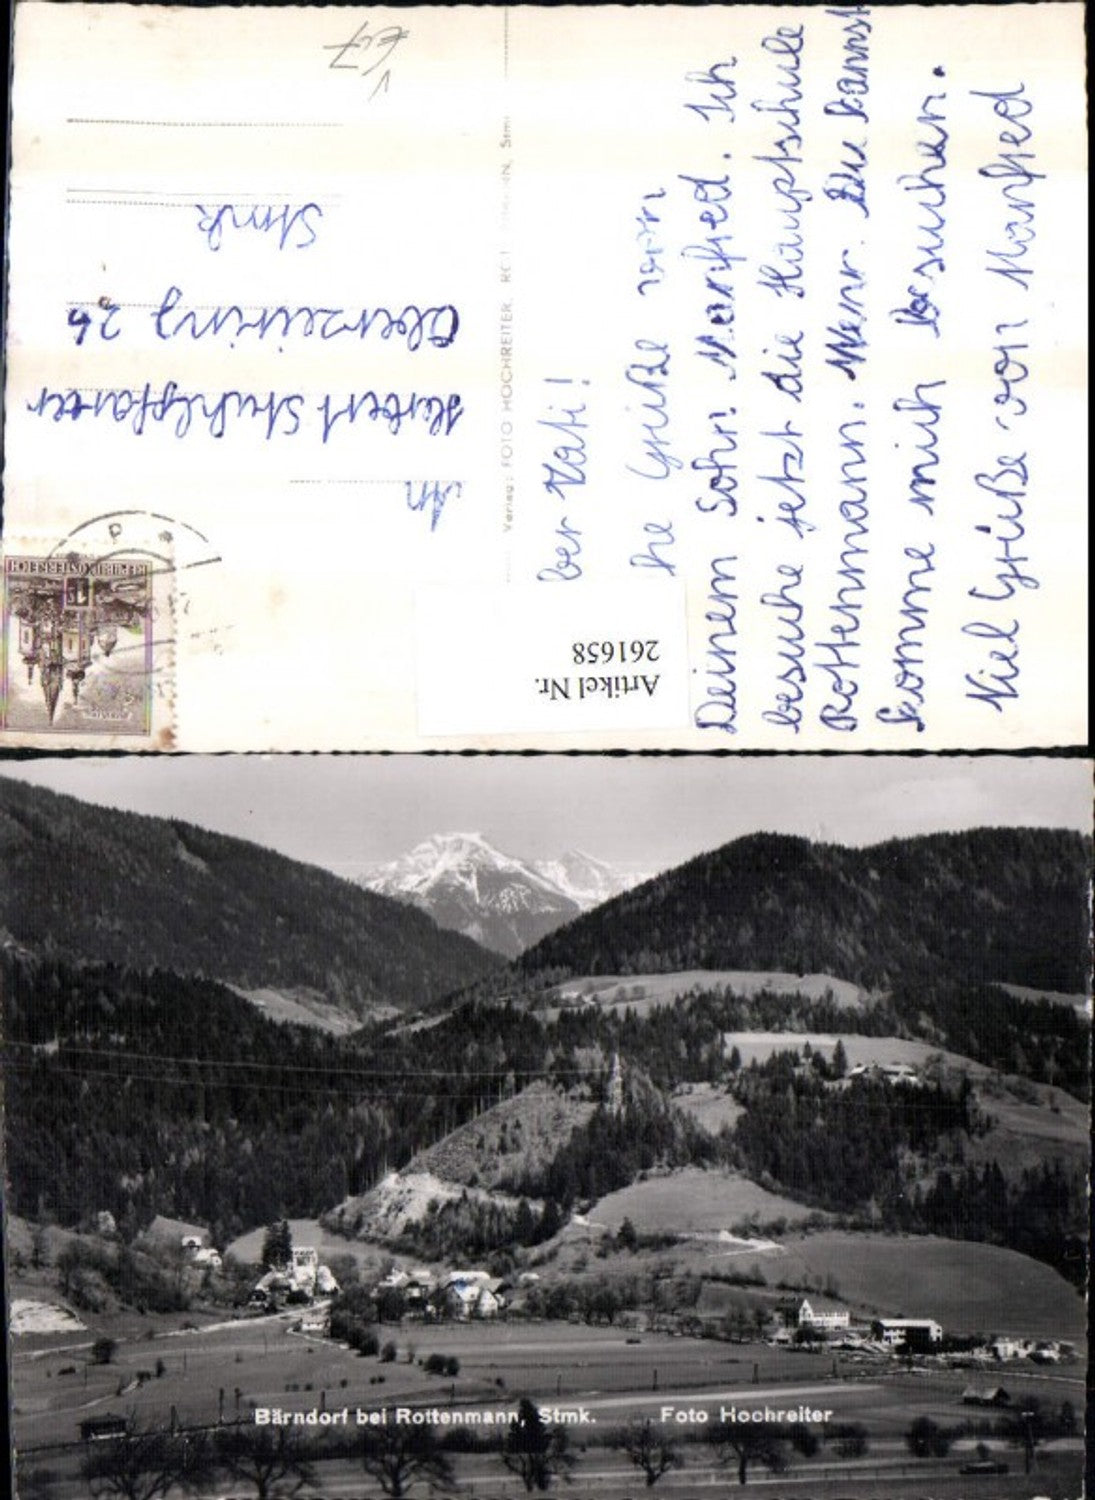 ber Vati!
he Grüße vorn
Deinem Sohn Manfred. Ich
besuche jetzt die Hauptschule
Rottenmann. Wenn Du kannst
komme mich besuchen.
Viel Grüße von Manfred
Verlag: FOTO HOCHREITER,
An
Herbert Stuhlpfarrer
Oberzeiring 26
Stmk
REPUBLIK ÖSTERREICH
Artikel Nr.
261658
Bärndorf bei Rottenmann, Stmk. Foto Hochreiter